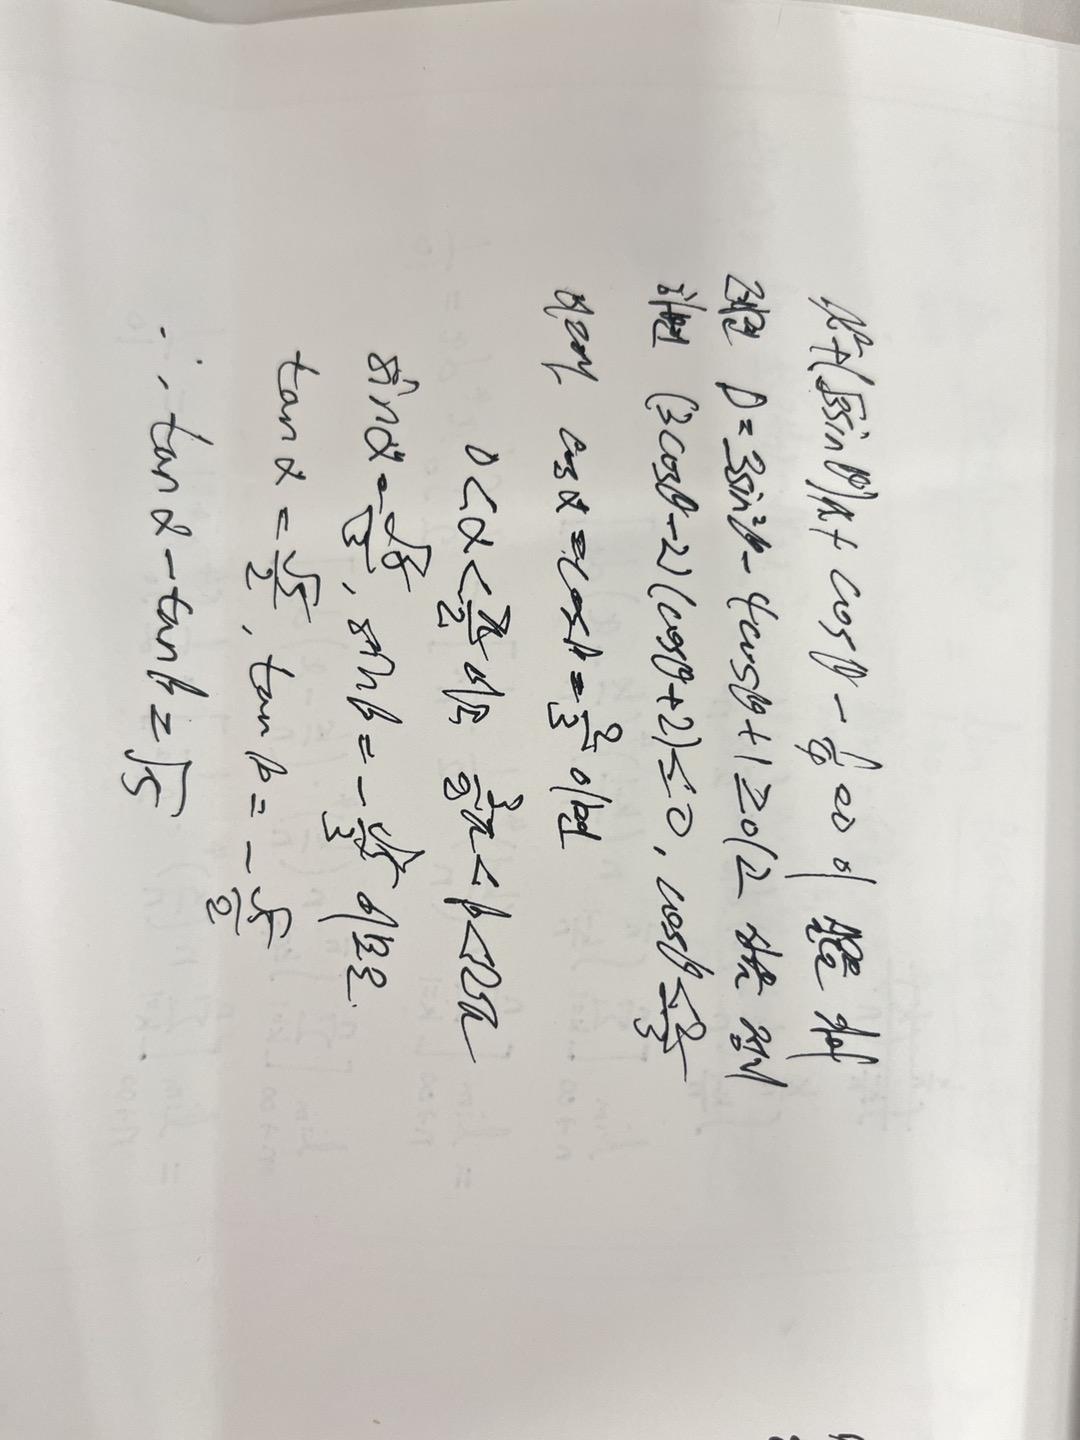 x²+(√3sinθ)x+cosθ-1/4=0이 실근을 가
D=3sin²θ-4cosθ+1≥0
(3cosθ-2)(cosθ+2)≤0, cosθ≤2/3
cosα=cosβ=2/3이면
0<α<π/2이므로 3/2π<β<2π
sinα=√5/3, sinβ=-√5/3이므로
tanα=√5/2, tanβ=-√5/2
∴ tanα-tanβ=√5